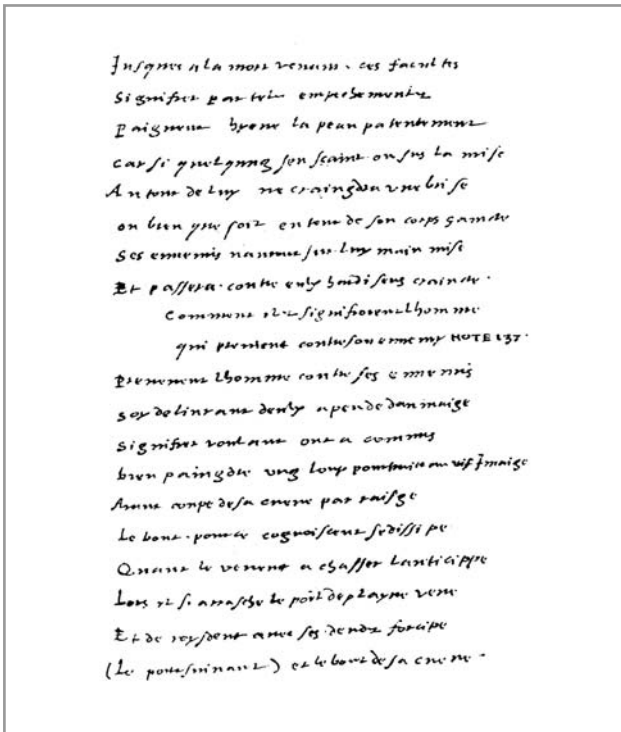 Jusques a la mort venant . ces facultes
Signifier par telz empechementz
Paignent hyene la peau patentement
Car si quelqung sen scaint ou sus la mise
Autour de luy ne craingdra une brise
ou bien que soit entour de son corps ceincte
Ses ennemis nauront sur luy main mise
Et passera . contre eulx hardi sens craincte .
Comment ilz signifioient lhomme
qui previent contre son ennemy NOTE 137 .
lhomme contre ses ennemis
soy delivrant deulx a peu de dommaige
Signifier voulant ont a commis
bien paingdre ung loup au vif Jmaige
Aiant coupe de sa cueue par
Le bout . pour ce se dissipe
Quant le venent a chasser lanticippe
Lors il si arrasche le poil de playne vene
Et de roydeur avec ses dendz forcipe
(Le poursuivant) et le bout de sa cueue .